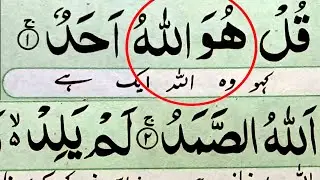 قُلْ هُوَ اللّٰهُ اَحَدٌ ۚ ١
کہو وہ اللہ ایک ہے
اَللّٰهُ الصَّمَدُ ۚ ٢ لَمْ یَلِدْ ۙ